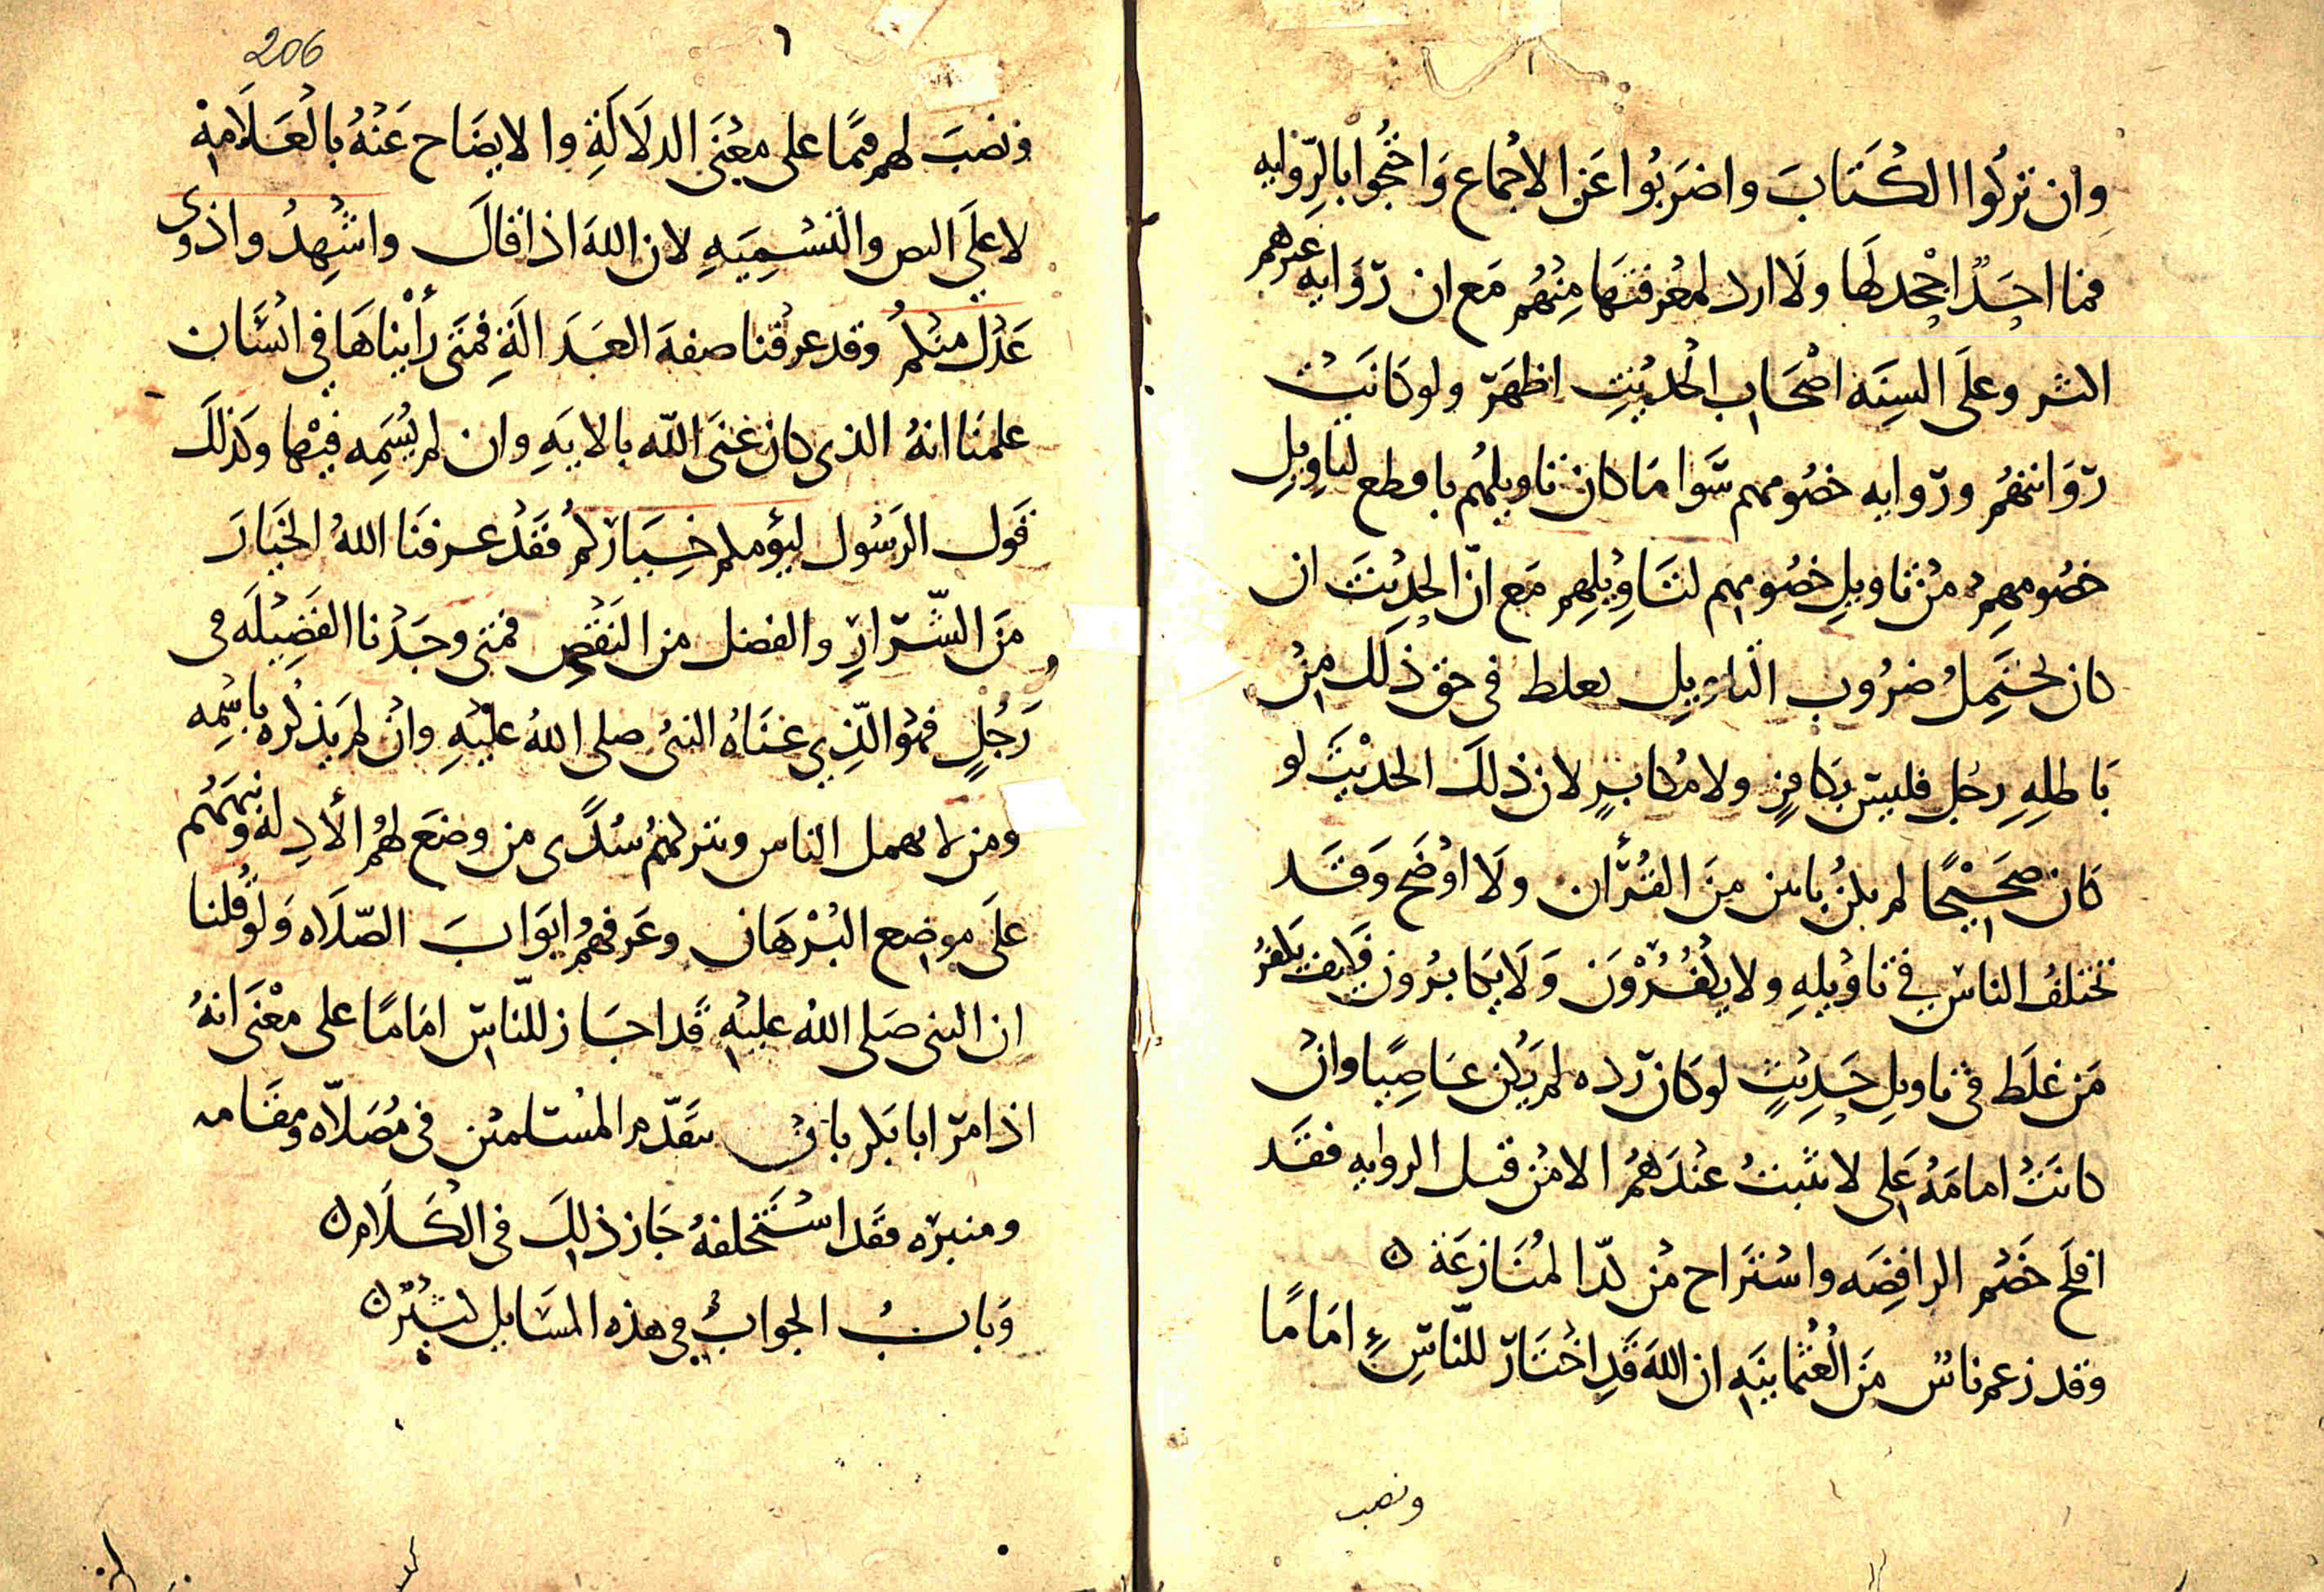 وان تركوا الكتاب واضربوا عن الاجماع واحتجوا بالروايه
فما احد اجحد لها ولا ارد لمعرفتها منهم مع ان روايه غيرهم
اكثر وعلى السنه اصحاب الحديث اظهر ولو كانت
روايتهم وروايه خصومهم سوا ما كان تاويلهم باقطع لتاويل
خصومهم من تاويل خصومهم لتاويلهم مع ان الحديث ان
كان يحتمل ضروب التاويل بغلط في حق ذلك من
باطله رجل فليس بكافر ولا مكابر لان ذلك الحديث لو
كان صحيحا لم يكن بابين من القرأن ولا اوضح وقد
تختلف الناس في تاويله ولا يكفرون ولا يكابرون فكيف يكفر
من غلط في تاويل حديث لو كان رده لم يكن عاصيا وان
كانت امامه على لا تثبت عندهم الا من قبل الروايه فقد
افلح خصم الرافضه واستراح من كد المنازعة ن
وقد زعم ناس من العثمانيه ان الله قد اختار للناس اماما
ونصب
206
٦
ونصب لهم قيما على معنى الدلالة والايضاح عنه بالعلامة
لا على النص والتسميه لان الله اذا قال واشهدوا ذوى
عدل منكم وقد عرفنا صفه العدالة فمتى رأيناها في انسان
علمنا انه الذى كان عنى الله بالايه وان لم يسمه فيها وكذلك
قول الرسول ليؤمكم خياركم فقد عرفنا الله الخيار
من الشرار والفضل من النقص فمتى وجدنا الفضيله في
رجل فهو الذي عناه النبى صلى الله عليه وان لم يذكره باسمه
ومن لا يهمل الناس ويتركهم سدى من وضع لهم الأدله ونبههم
على موضع البرهان وعرفهم ابواب الصلاه ولو قلنا
ان النبى صلى الله عليه قد اجاز للناس اماما على معنى انه
اذ امر ابا بكر بان يتقدم المسلمين في مصلاه ومقامه
ومنبره فقد استخلفه جاز ذلك في الكلام ن
وباب الجواب في هذه المسايل كثير ن